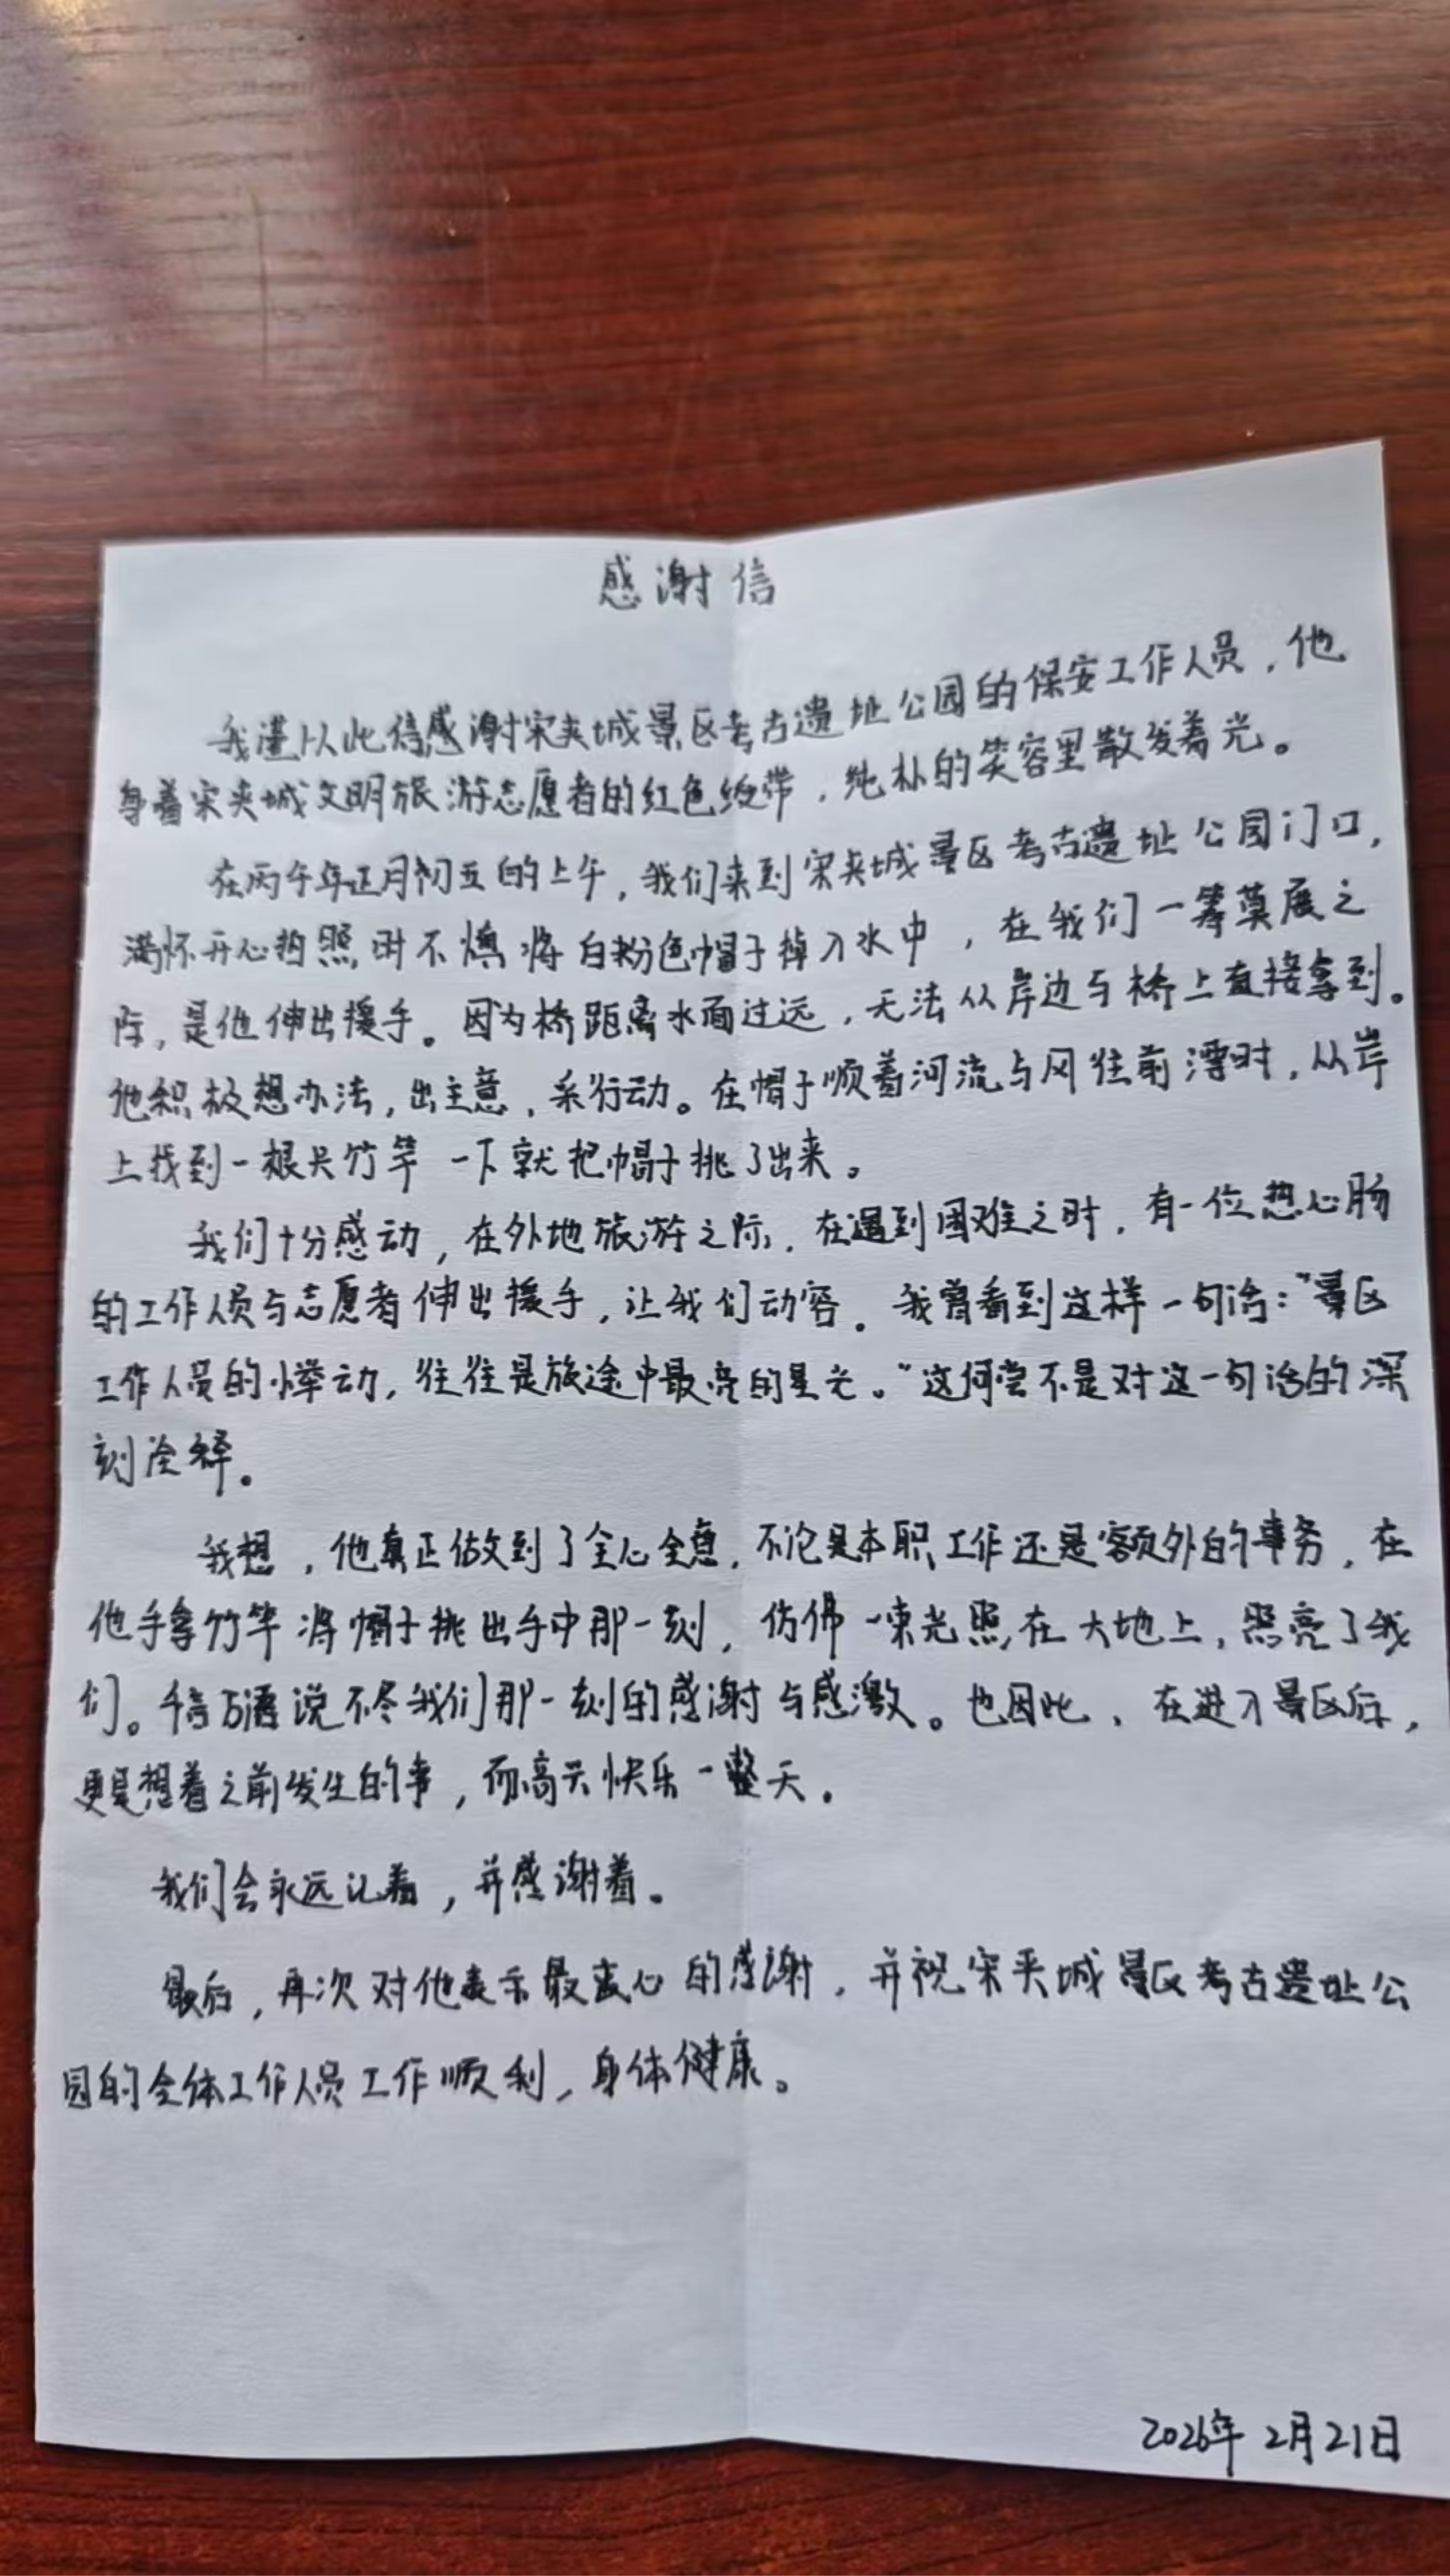 感谢信
我谨以此信感谢宋夹城景区考古遗址公园的保安工作人员，他
身着宋夹城文明旅游志愿者的红色绶带，纯朴的笑容里散发着光。
在丙午年正月初五的上午，我们来到宋夹城景区考古遗址公园门口，
满怀开心拍照时不慎将白粉色帽子掉入水中，在我们一筹莫展之
际，是他伸出援手。因为桥距离水面过远，无法从岸边与桥上直接拿到。
他积极想办法，出主意，采行动。在帽子顺着河流与风往前漂时，从岸
上找到一根长竹竿一下就把帽子挑了出来。
我们十分感动，在外地旅游之际，在遇到困难之时，有一位热心肠
的工作人员与志愿者伸出援手，让我们动容。我曾看到这样一句话：“景区
工作人员的小举动，往往是旅途中最亮的星光。”这何尝不是对这一句话的深
刻诠释。
我想，他真正做到了全心全意，不论是本职工作还是额外的事务，在
他手拿竹竿将帽子挑出手中那一刻，仿佛一束光照在大地上，照亮了我
们。千言万语说不尽我们那一刻的感谢与感激。也因此，在进入景区后，
更是想着之前发生的事，而高兴快乐一整天。
我们会永远记着，并感谢着。
最后，再次对他表示最衷心的感谢，并祝宋夹城景区考古遗址公
园的全体工作人员工作顺利，身体健康。
2026年2月21日